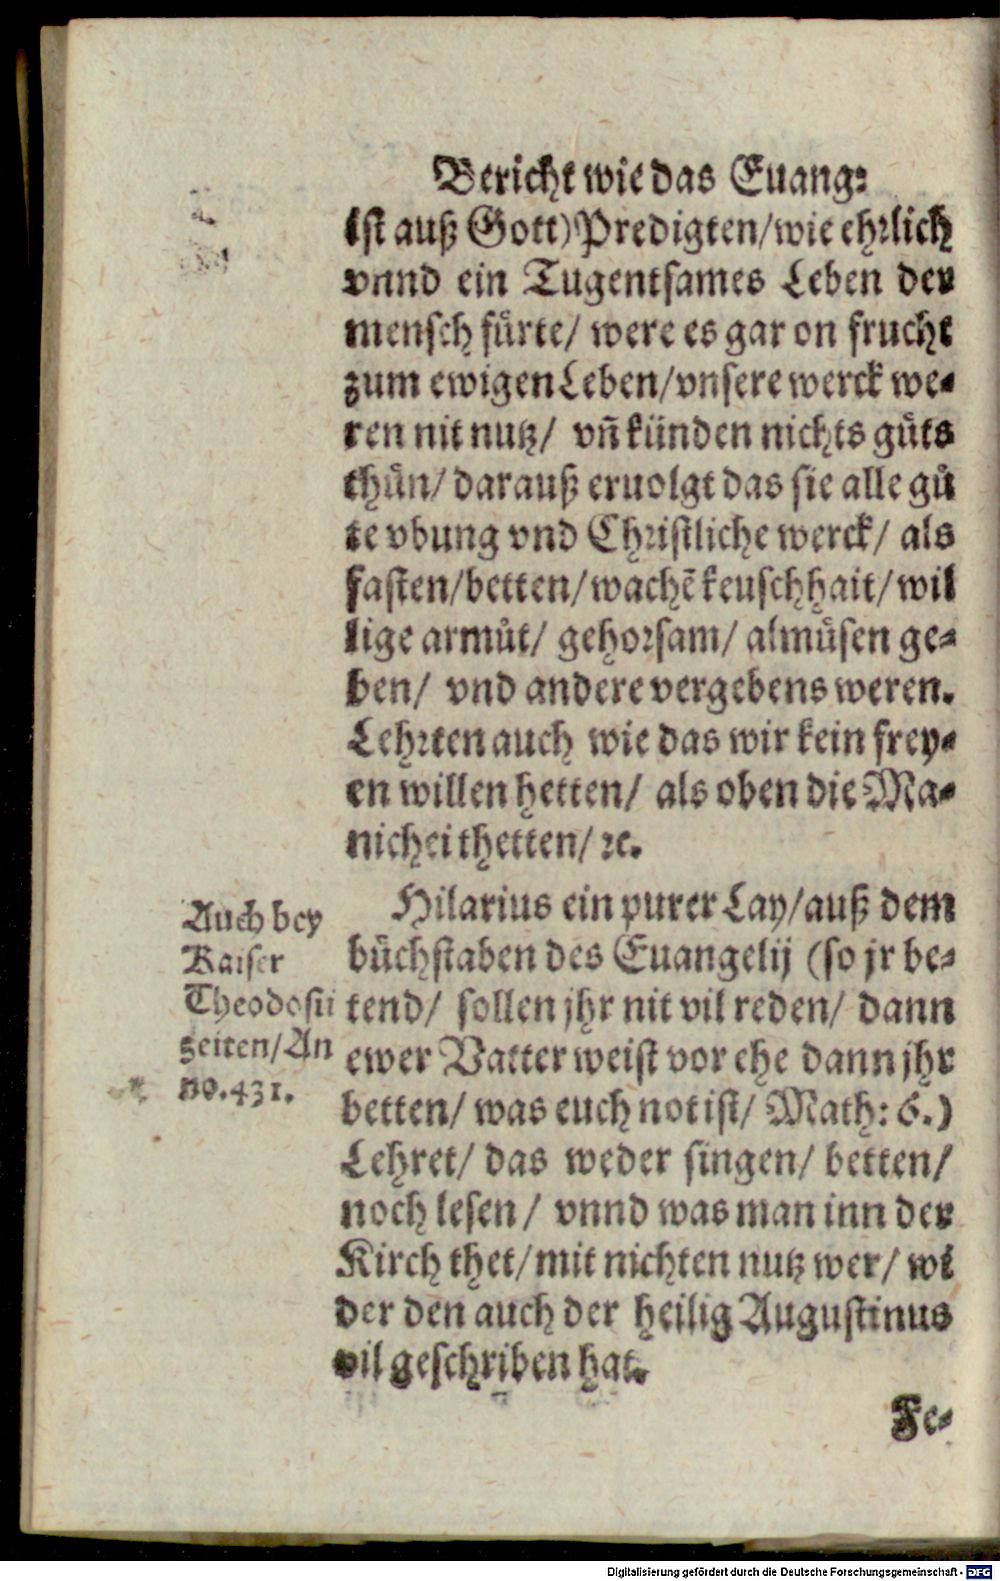 Bericht wie das Euang:
ist auß Gott) Predigten/wie ehrlich
vnnd ein Tugentsames Leben der
mensch fürte/ were es gar on frucht
zum ewigen Leben/vnsere werck we-
ren nit nutz/ vñ künden nichts gůts
thůn/ darauß eruolgt das sie alle gů
te vbung vnd Christliche werck/ als
fasten/betten/wachẽ keuschhait/wil
lige armůt/ gehorsam/ almůsen ge-
ben/ vnd andere vergebens weren.
Lehrten auch wie das wir kein frey-
en willen hetten/ als oben die Ma-
nichei thetten/ ꝛc.
Auch bey
Kaiser
Theodosii
zeiten/An
no.431.
Hilarius ein purer Lay/auß dem
bůchstaben des Euangelij (so jr be-
tend/ sollen jhr nit vil reden/ dann
ewer Vatter weist vor ehe dann jhr
betten/ was euch not ist/ Math: 6.)
Lehret/ das weder singen/ betten/
noch lesen/ vnnd was man inn der
Kirch thet/mit nichten nutz wer/ wi
der den auch der heilig Augustinus
vil geschriben hat.
Fe-
Digitalisierung gefördert durch die Deutsche Forschungsgemeinschaft - DFG